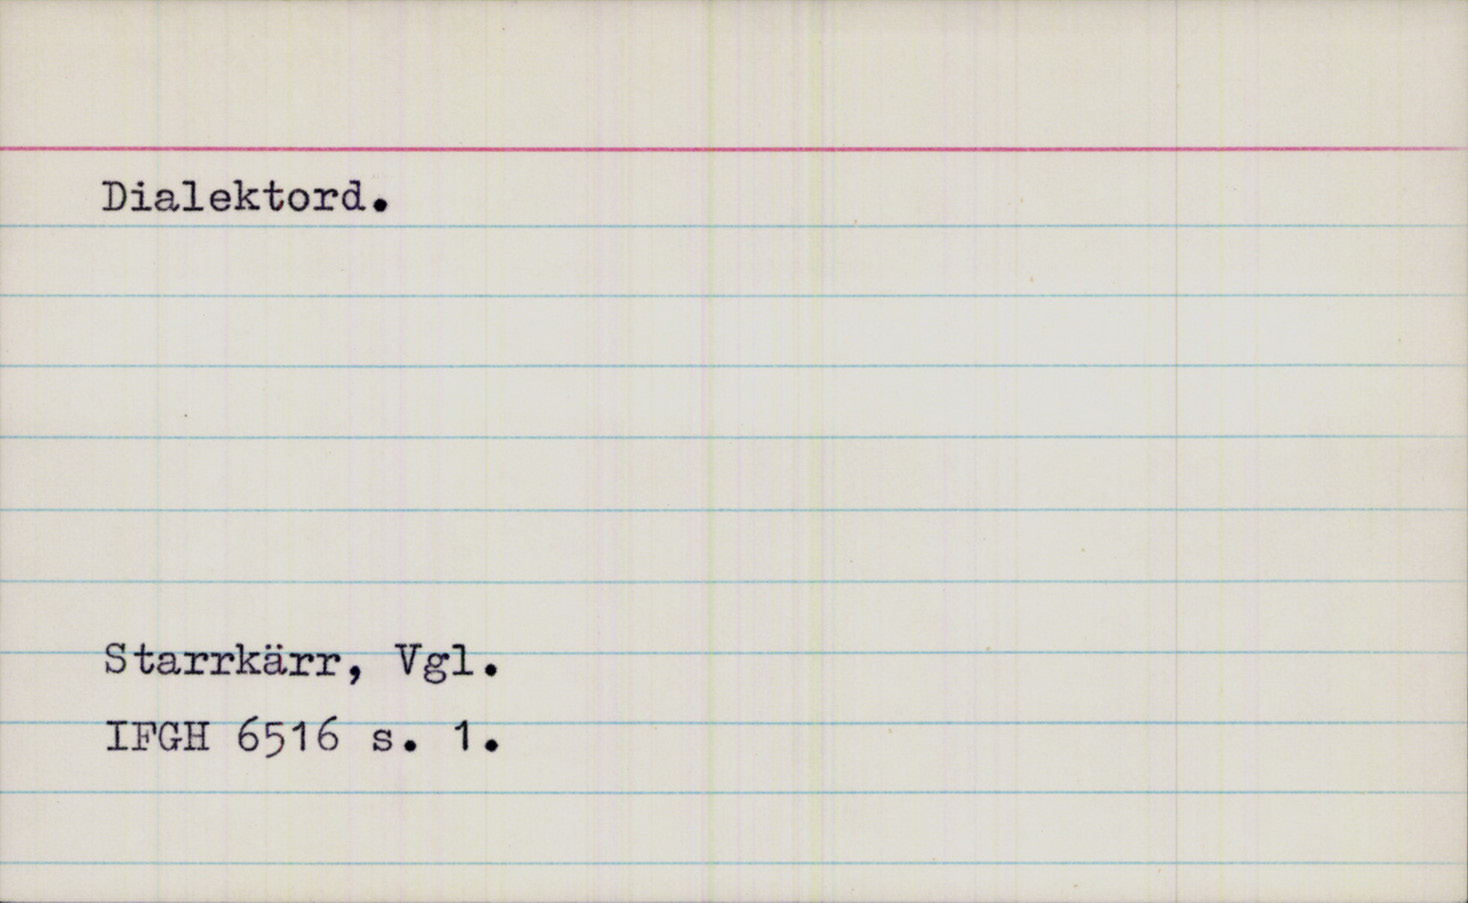 Dialektord.
Starrkärr, Vgl.
IFGH 6516 s. 1.